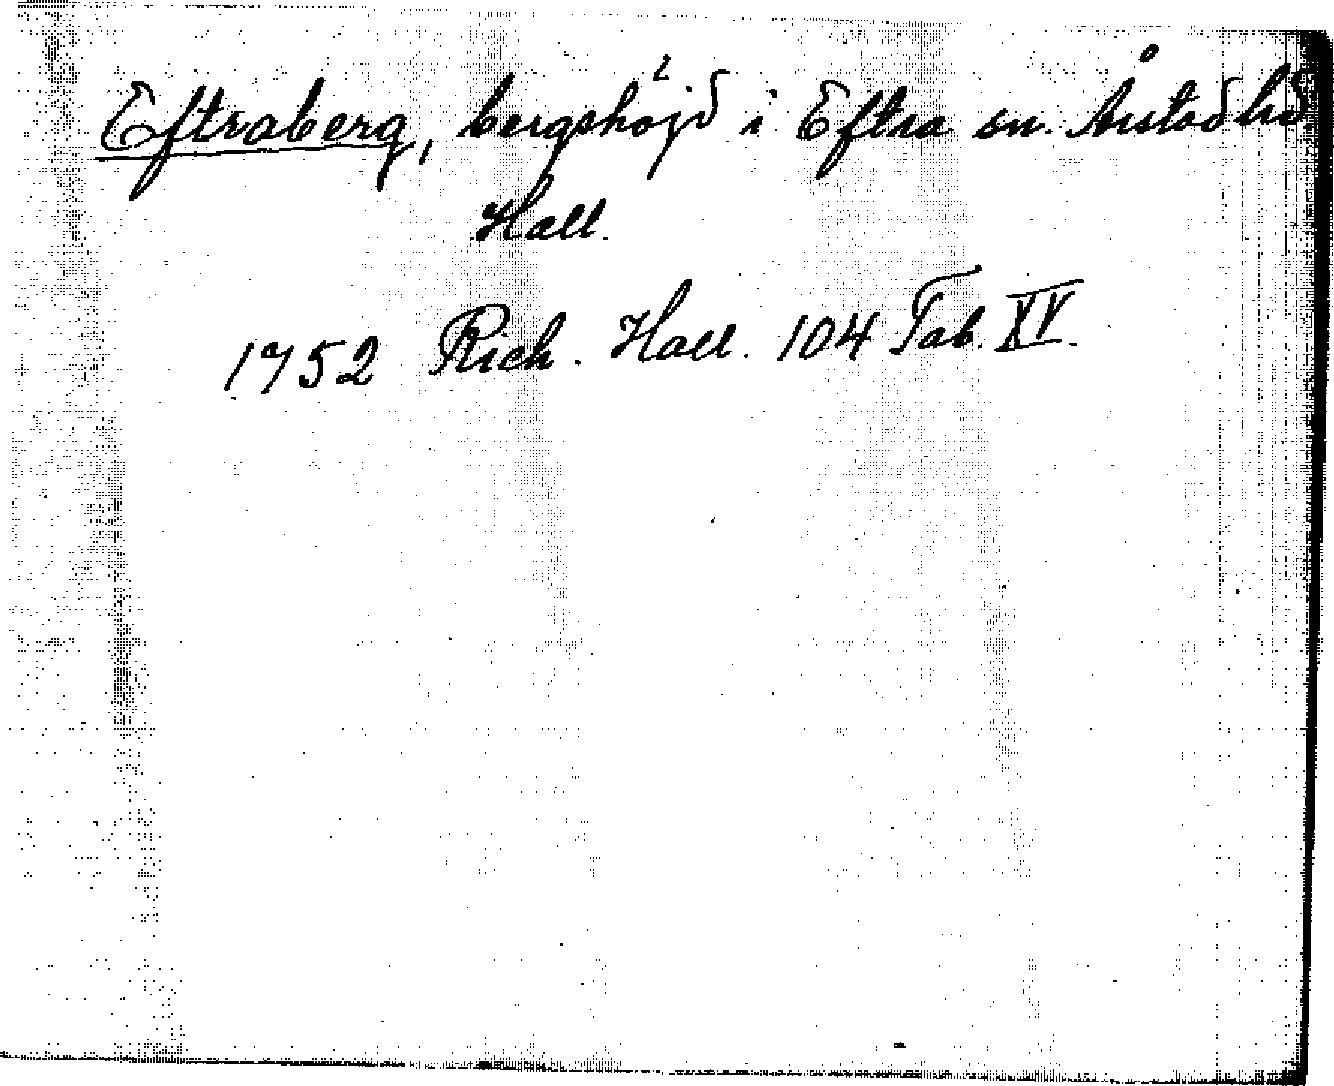 Eftraberg, bergshöjd i Eftra sn. Årstad hd.
Hall.
1752 Rich. Hall. 104 Tab. XV.